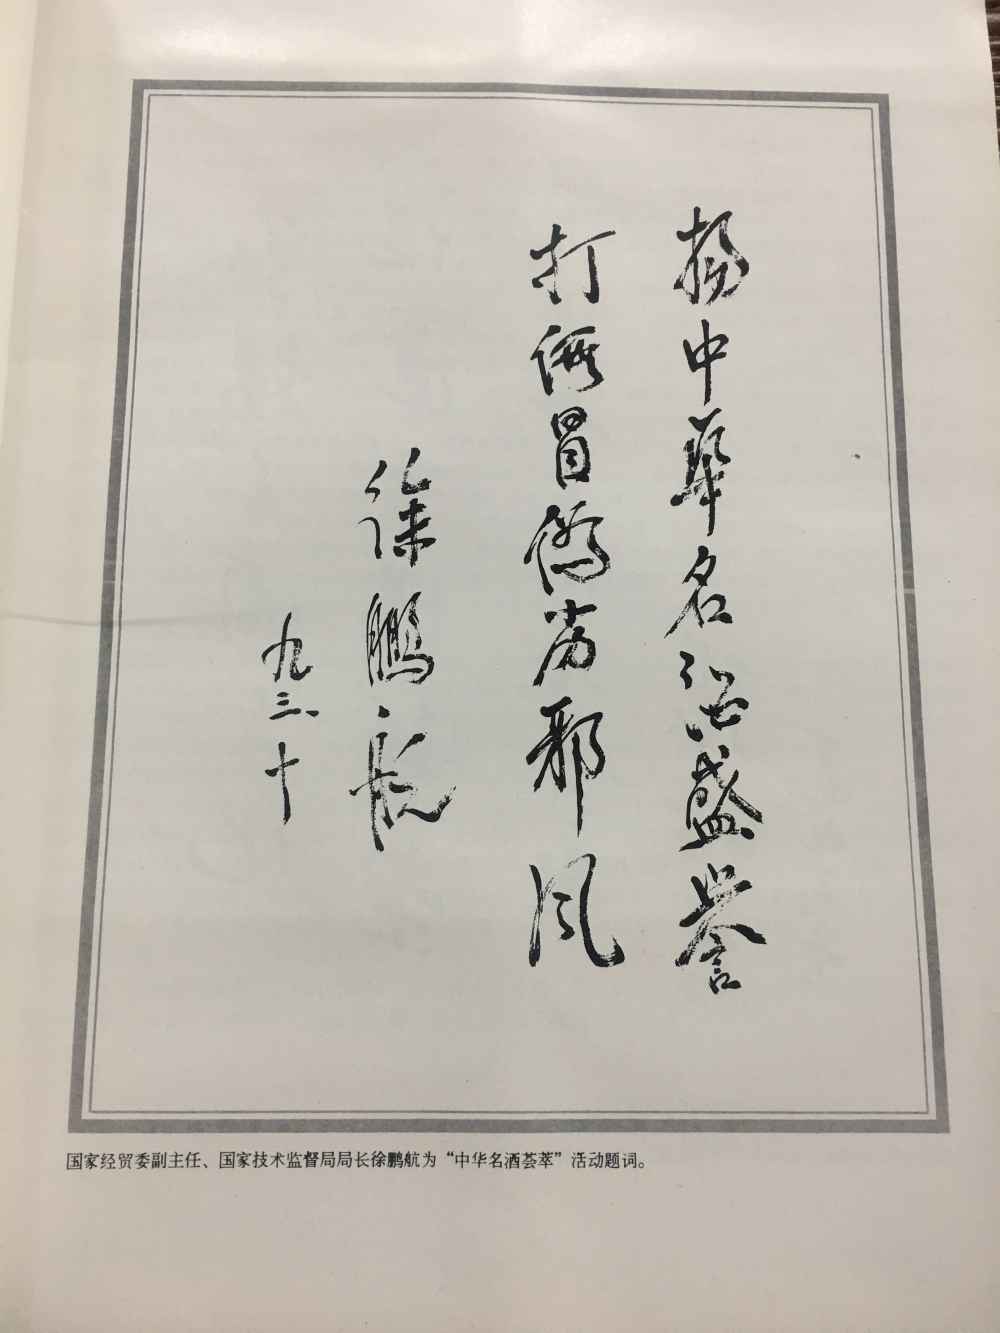 扬中華名酒盛誉
打假冒偽劣邪风
徐鹏航
九三、十
国家经贸委副主任、国家技术监督局局长徐鹏航为“中华名酒荟萃”活动题词。